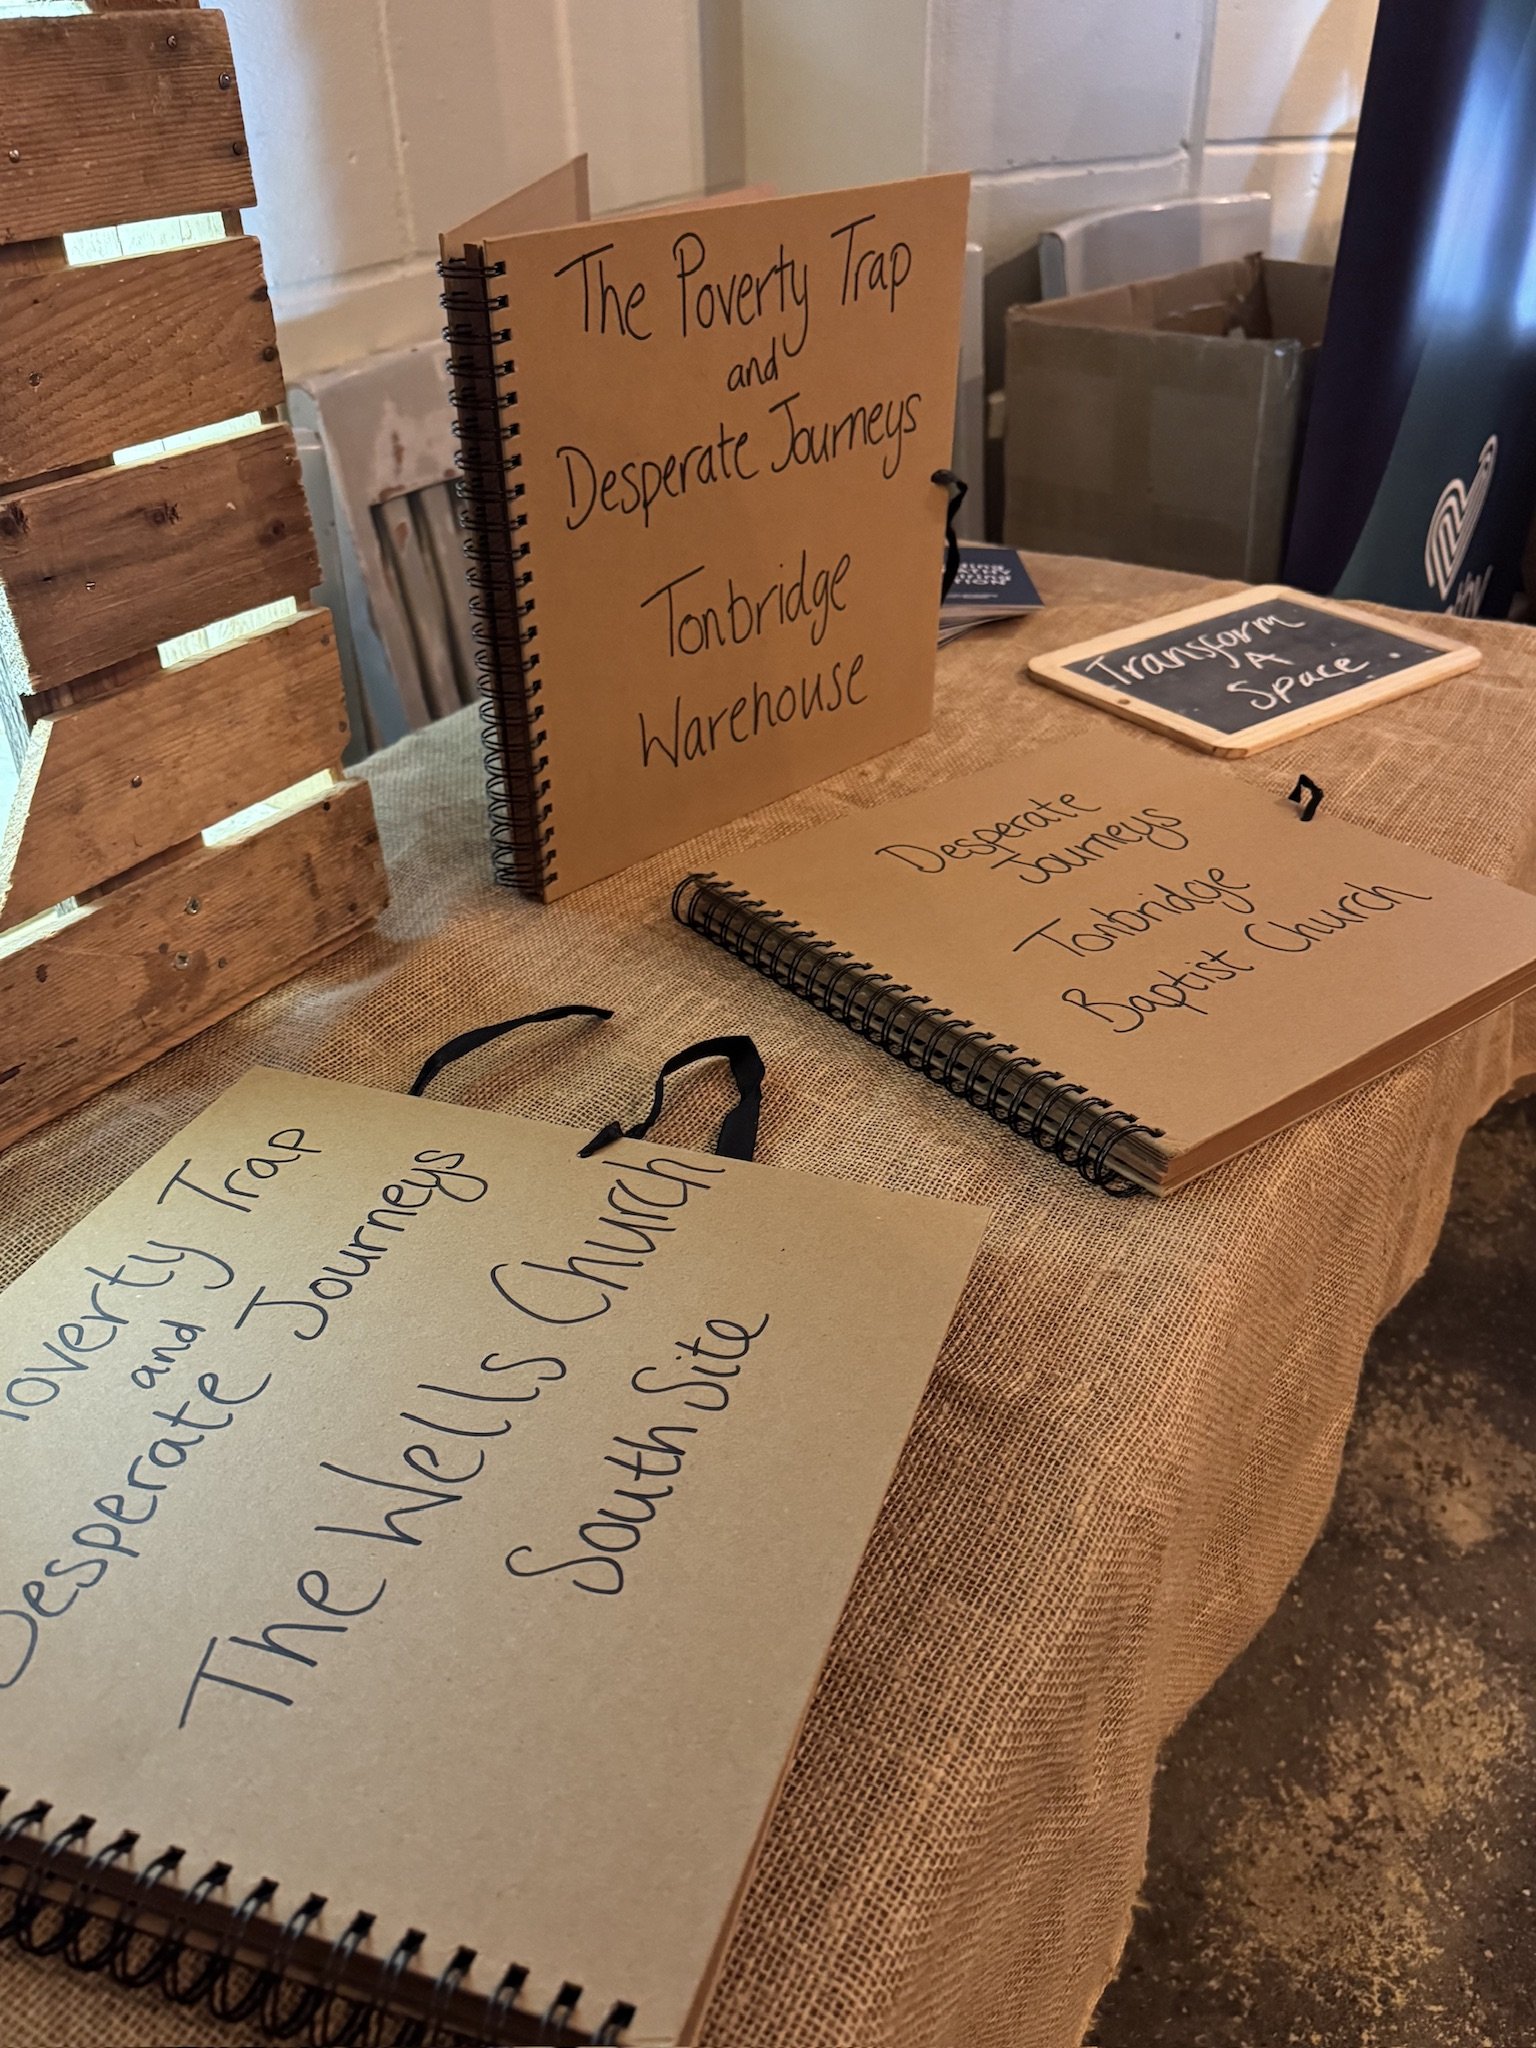 The Poverty Trap
and
Desperate Journeys
Tonbridge
Warehouse
Transform
A
Space
Desperate
Journeys
Tonbridge
Baptist Church
Poverty Trap
and
Desperate Journeys
The Wells Church
South Site